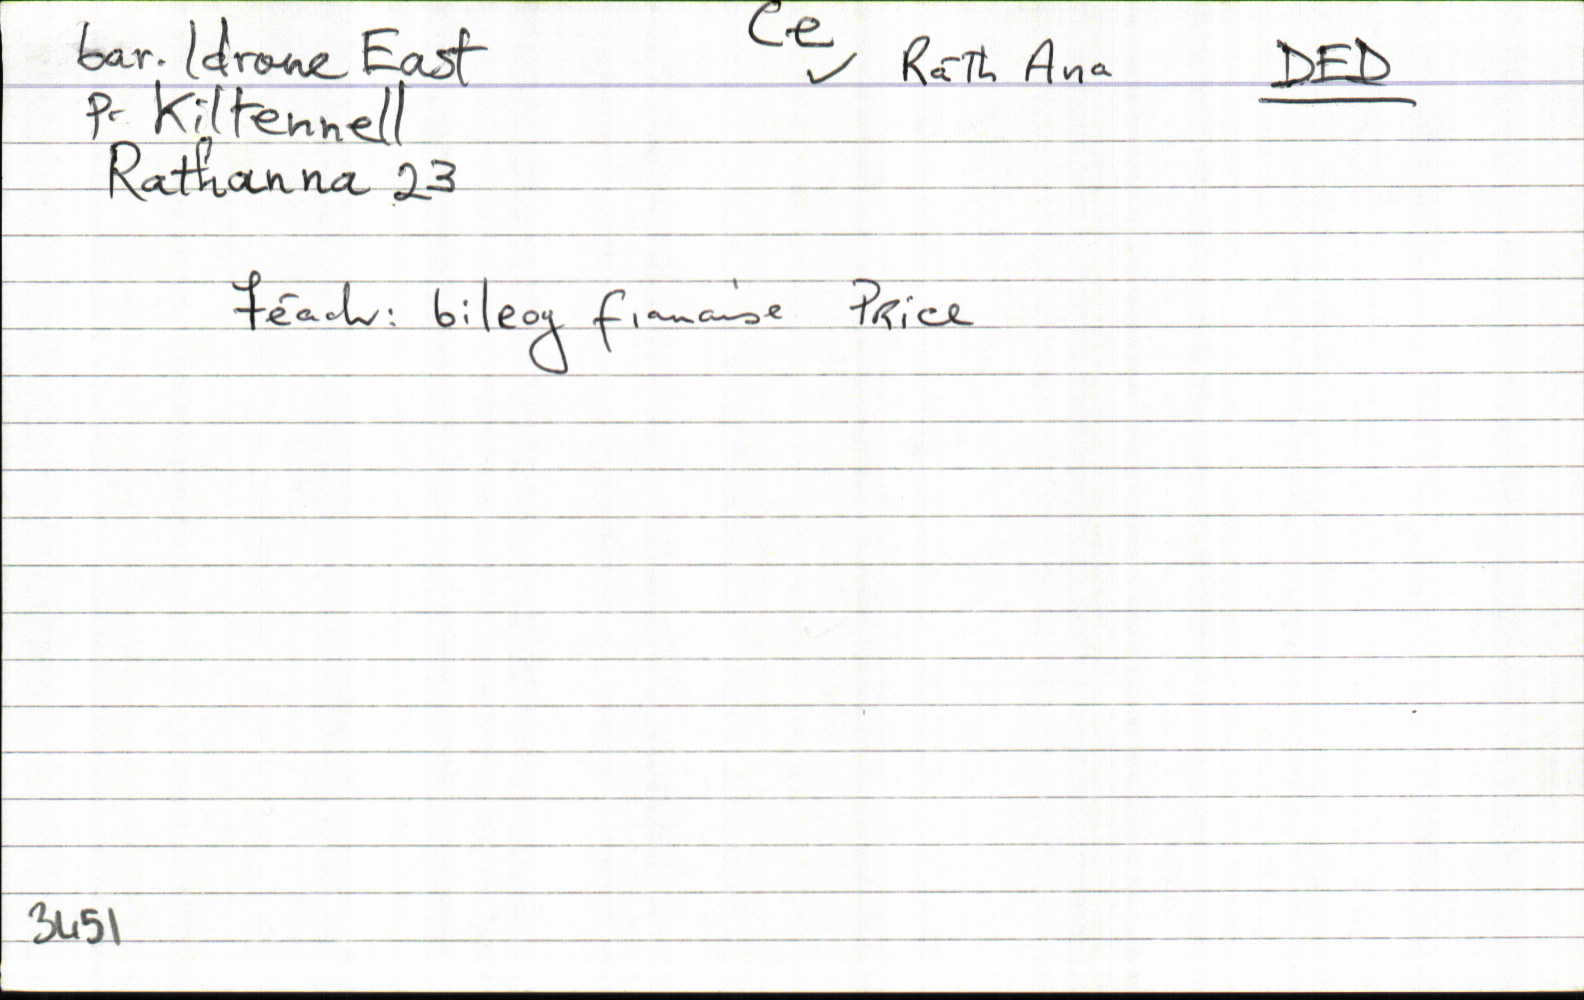 Ce
bar. Idrone East ✓ Ráth Ana DED
pr Kiltennell
Rathanna 23
Féach: bileog fianaise Price
3451